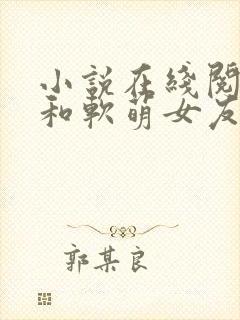 小說在綫閱
和軟萌女友
郭某良